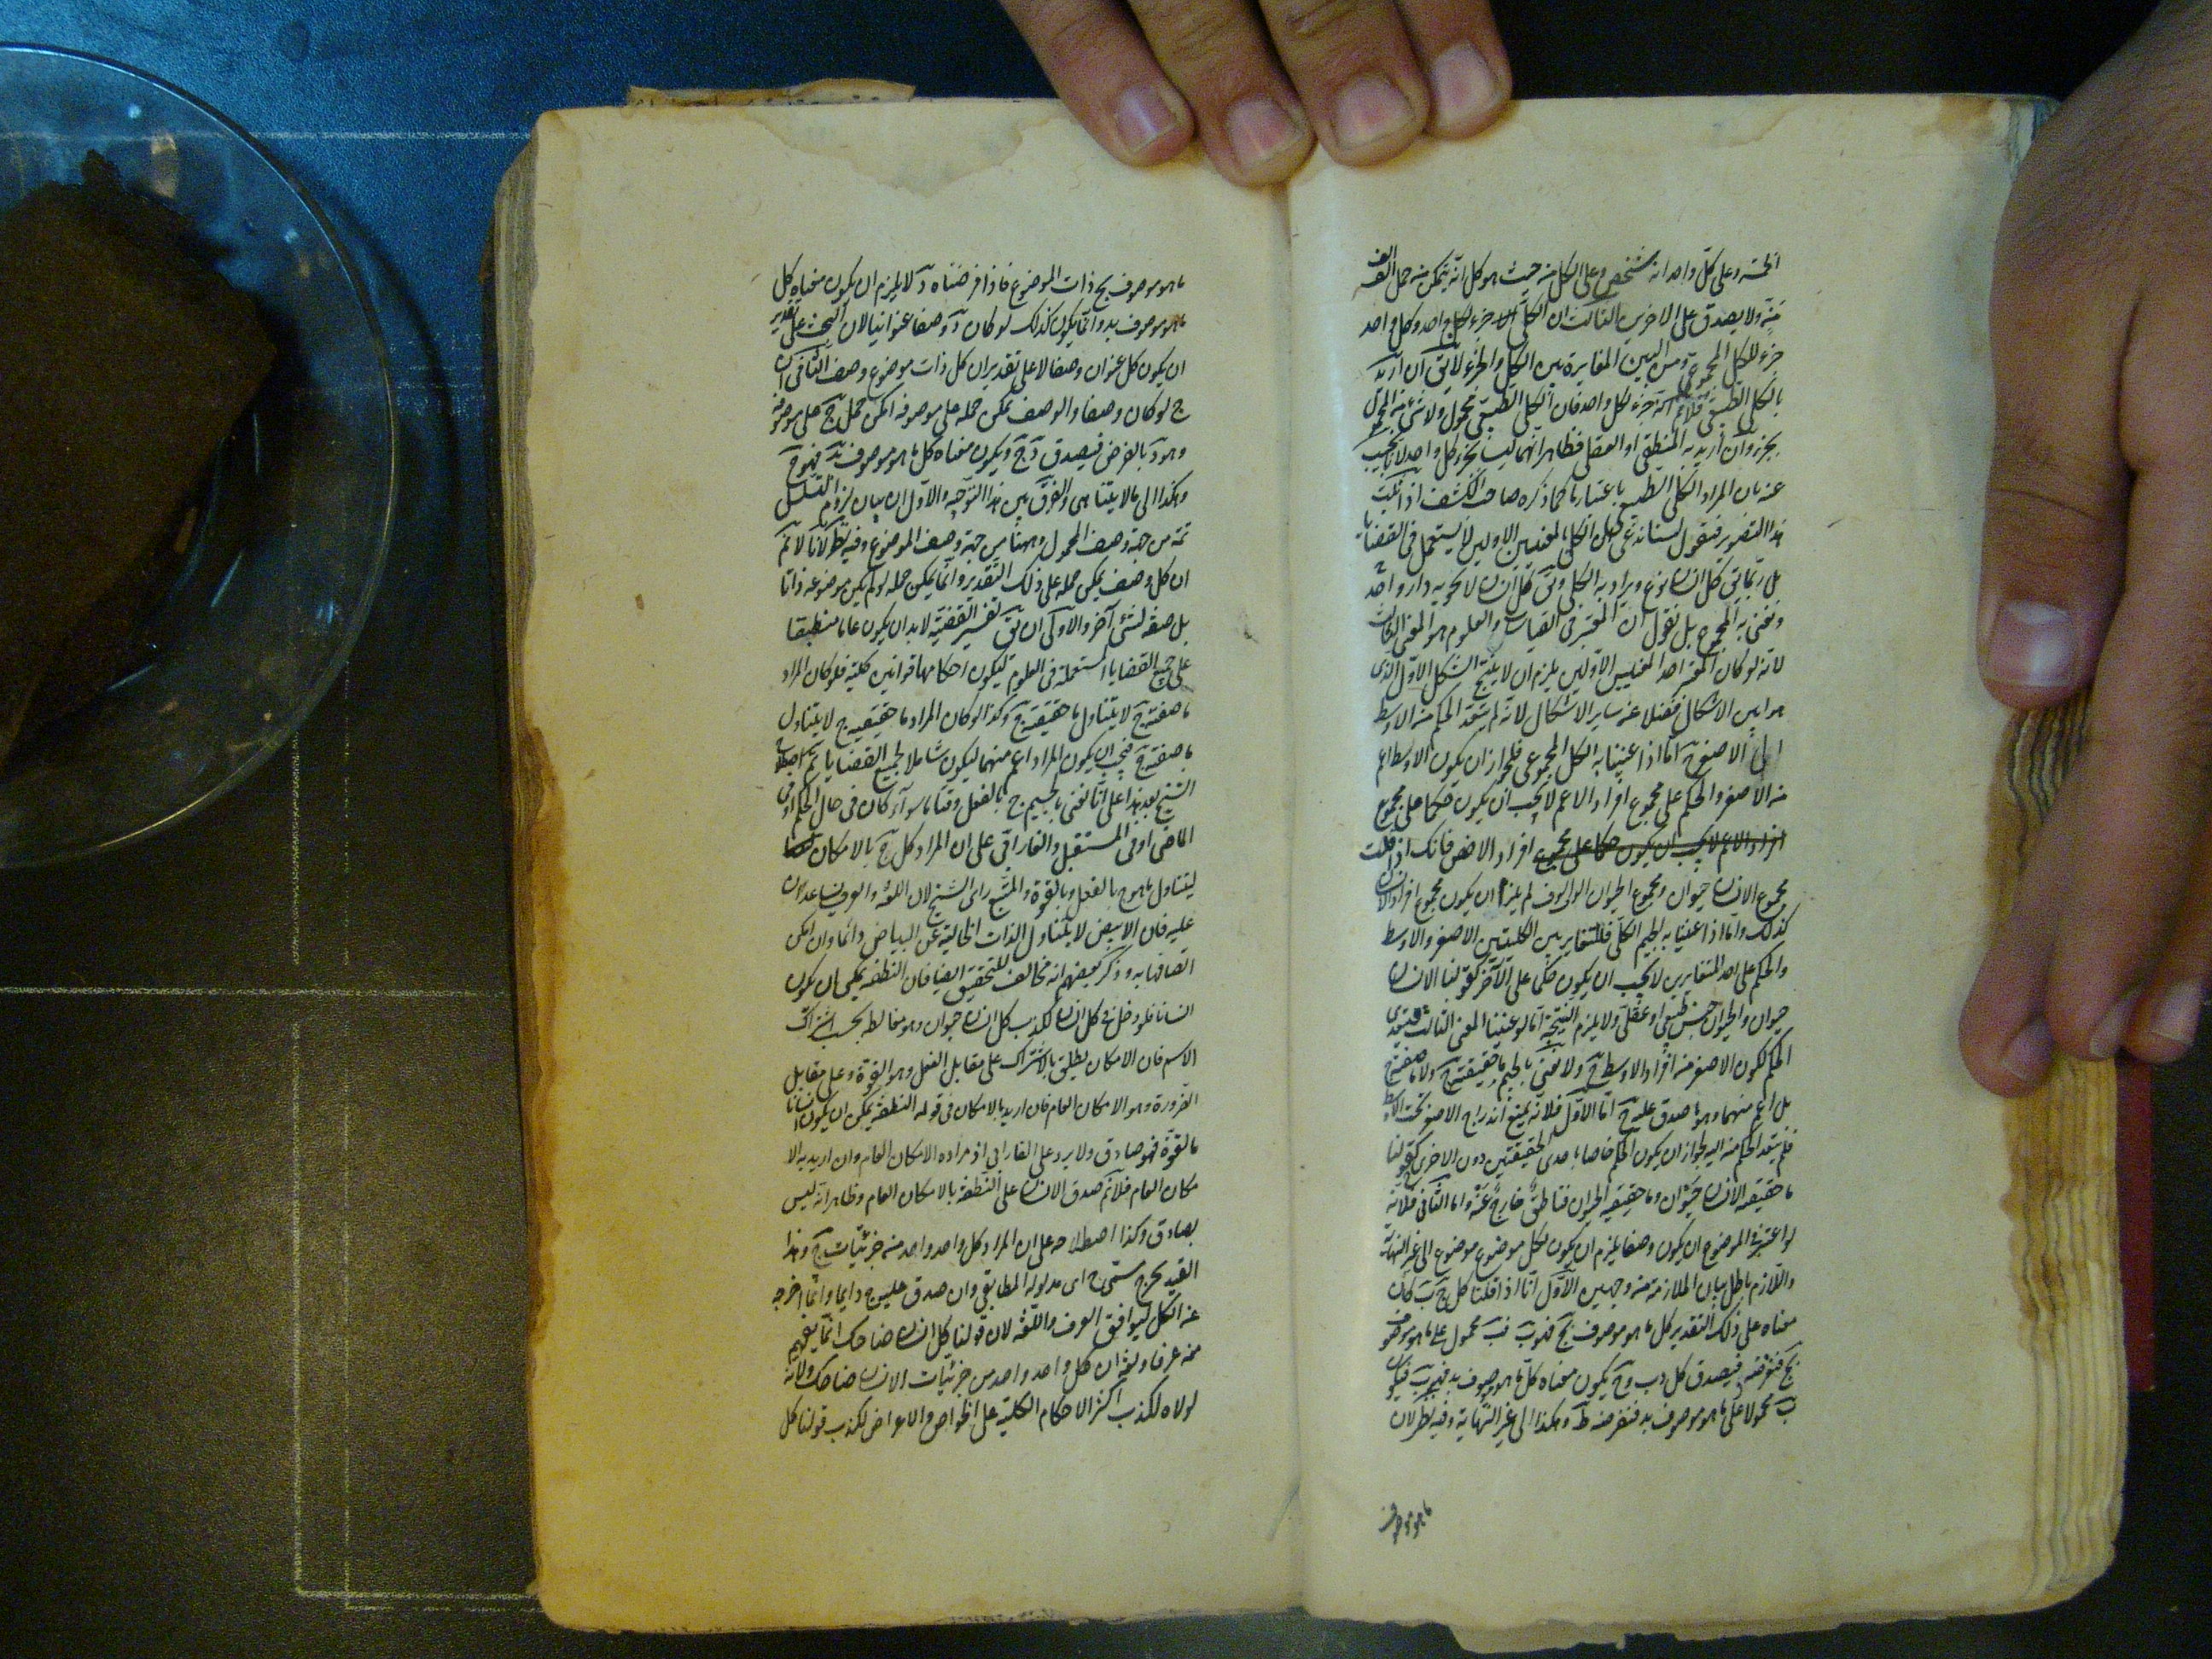 الخمسة وعلى كل واحد انه شخص وعلى الكل من حيث هو كل انه يتمكن من حمل الف الف
منّ ولا يصدق على الاخرين الثالث ان الكلى جزء لكل واحد وكل واحد
جزء للكل المجموعى ومن البين المغايرة بين الكل والجزء لا يق ان اريد
بالكلى الطبيعى فلا نم انه جزء لكل واحد فان الكلى الطبيعى محمول ولا شئ من المحمول
بجزء وان اريد به المنطقى او العقلى فظاهر انهما ليسا بجزء كل واحد لانا نجيب
عنه بان المراد الكلى الطبيعى باعتبار ما كما ذكره صاحب الكشف اذا تمت
هذا التصوير فنقول لسنا ندعى ان الكل بالمعنيين الاولين لا يستعمل فى القضايا
بل ربما يق كل انسان نوع ويراد به الكلى ويق كل انسان لا تحويه دار واحد
ونعنى به المجموع بل نقول ان المعتبر فى القياسات والعلوم هو المعنى الثالث
لانه لو كان المعتبر احد المعنيين الاولين يلزم ان لا ينتج الشكل الاول الذى
هو ابين الاشكال فضلا عن ساير الاشكال لانه لم يتعد الحكم من الاوسط
الى الاصغر اما اذا عنينا به الكل المجموعى فلجواز ان يكون الاوسط اعم
من الاصغر والحكم على مجموع افراد الاعم لا يجب ان يكون حكما على مجموع
افراد الاعم لا يجب ان يكون حكما على مجموع افراد الاخص فانك اذا قلت
مجموع الانسان حيوان ومجموع الحيوان الوف الوف لم يلزم ان يكون مجموع افراد الانسان
كذلك واما اذا عنينا به الجيم الكلى فللتغاير بين الكليتين الاصغر والاوسط
والحكم على احد المتغايرين لا يجب ان يكون حكما على الآخر كقولنا الانسان
حيوان والحيوان جنس طبيعى او عقلى ولا يلزم النتيجة اما لو عنينا المعنى الثالث فيتعدى
الحكم لكون الاصغر من افراد الاوسط ولا نعنى بالجيم ما حقيقته ج ولا ما صفته ج
بل اعم منهما وهو ما صدق عليه ج اما الاول فلانه يمنع اندراج الاصغر تحت الاوسط
فلم يتعد الحكم منه اليه لجواز ان يكون الحكم خاصا باحدى الحقيقتين دون الاخرى كقولنا
ما حقيقته الانسان حيوان وما حقيقته الحيوان فناطق خارج عنه واما الثانى فلانه
لو اعتبر فى الموضوع ان يكون وصفا يلزم ان يكون لكل موضوع موضوع الى غير النهاية
واللازم باطل بيان الملازمة من وجهين الاول انا اذا قلنا كل ج ب كان
معناه على ذلك التقدير كل ما هو موصوف بج فهو ب فب محمول على ما هو موصوف
بج فنفرضه د فيصدق كل د ب وح يكون معناه كل ما هو موصوف بد فهو ب فيكون
ب محمولا على ما هو موصوف بد فنفرضه ط وهكذا الى غير النهاية وفيه نظر لان
ما هو موصوف
ما هو موصوف بج ذات الموضوع فاذا فرضناه د لا يلزم ان يكون معناه كل
ما هو موصوف بد وانما يكون كذلك لو كان د وصفا عنوانيا لان البحث على تقدير
ان يكون كل عنوان وصفا لا على تقدير ان كل ذات موضوع وصف الثانى ان
ج لو كان وصفا والوصف يمكن حمله على موصوفه امكن حمل ج على موصوفه
وهو د بالفرض فيصدق د ج ويكون معناه كل ما هو موصوف بد فهو ج
وهكذا الى ما لا يتناهى والفرق بين هذا التوجيه والاول ان بيان لزوم التسلسل
ثمه من جهة وصف المحمول وههنا من جهة وصف الموضوع وفيه نظر لانا لا نم
ان كل وصف يمكن حمله على ذلك التقدير وانما يمكن حمله لو لم يكن موضوعه ذاتا
بل صفة لشئ آخر والاولى ان يق تفسير القضية لا بد ان يكون عاما منطبقا
على جميع القضايا المستعملة فى العلوم ليكون احكامها قوانين كلية فلو كان المراد
ما صفته ج لا يتناول ما حقيقته ج وكذا لو كان المراد ما حقيقته ج لا يتناول
ما صفته ج فيجب ان يكون المراد اعم منهما ليكون شاملا لجميع القضايا ثم اصطلح
الشيخ بعد هذا على انا نعنى بالجيم ج بالفعل وقتا ما سواء كان فى حال الحكم او فى
الماضى او فى المستقبل والفارابى على ان المراد كل ج بالامكان
ليتناول ما هو ج بالفعل وبالقوة والمتبع راى الشيخ لان اللغة والعرف يساعدان
عليه فان الابيض لا يتناول الذات الخالية عن البياض دائما وان امكن
اتصافها به وذكر بعضهم انه مخالف للتحقيق ايضا فان النطفة يمكن ان يكون
انسانا فلو دخل فى كل انسان لكذب كل انسان حيوان وهو مغالطه بحسب اشتراك
الاسم فان الامكان يطلق بالاشتراك على مقابل الفعل وهو القوة وعلى مقابل
الضرورة وهو الامكان العام فان اريد بالامكان فى قوله النطفة يمكن ان يكون انسانا
بالقوة فهو صادق ولا يرد على الفارابى اذ مراده الامكان العام وان اريد به الا
مكان العام فلا نم صدق الانسان على النطفة بالامكان العام وظاهر انه ليس
بصادق وكذا اصطلاحه على ان المراد كل واحد واحد من جزئيات ج وهذا
القيد يخرج مسمى ج اى مدلوله المطابقى وان صدق عليه ج دايما وانما اخرجه
عن الكل ليوافق العرف واللغة لان قولنا كل انسان ضاحك انما يفهم
منه عرفا ولغة ان كل واحد واحد من جزئيات الانسان ضاحك ولانه
لولاه لكذب اكثر الاحكام الكلية على الخواص والاعراض لكذب قولنا كل